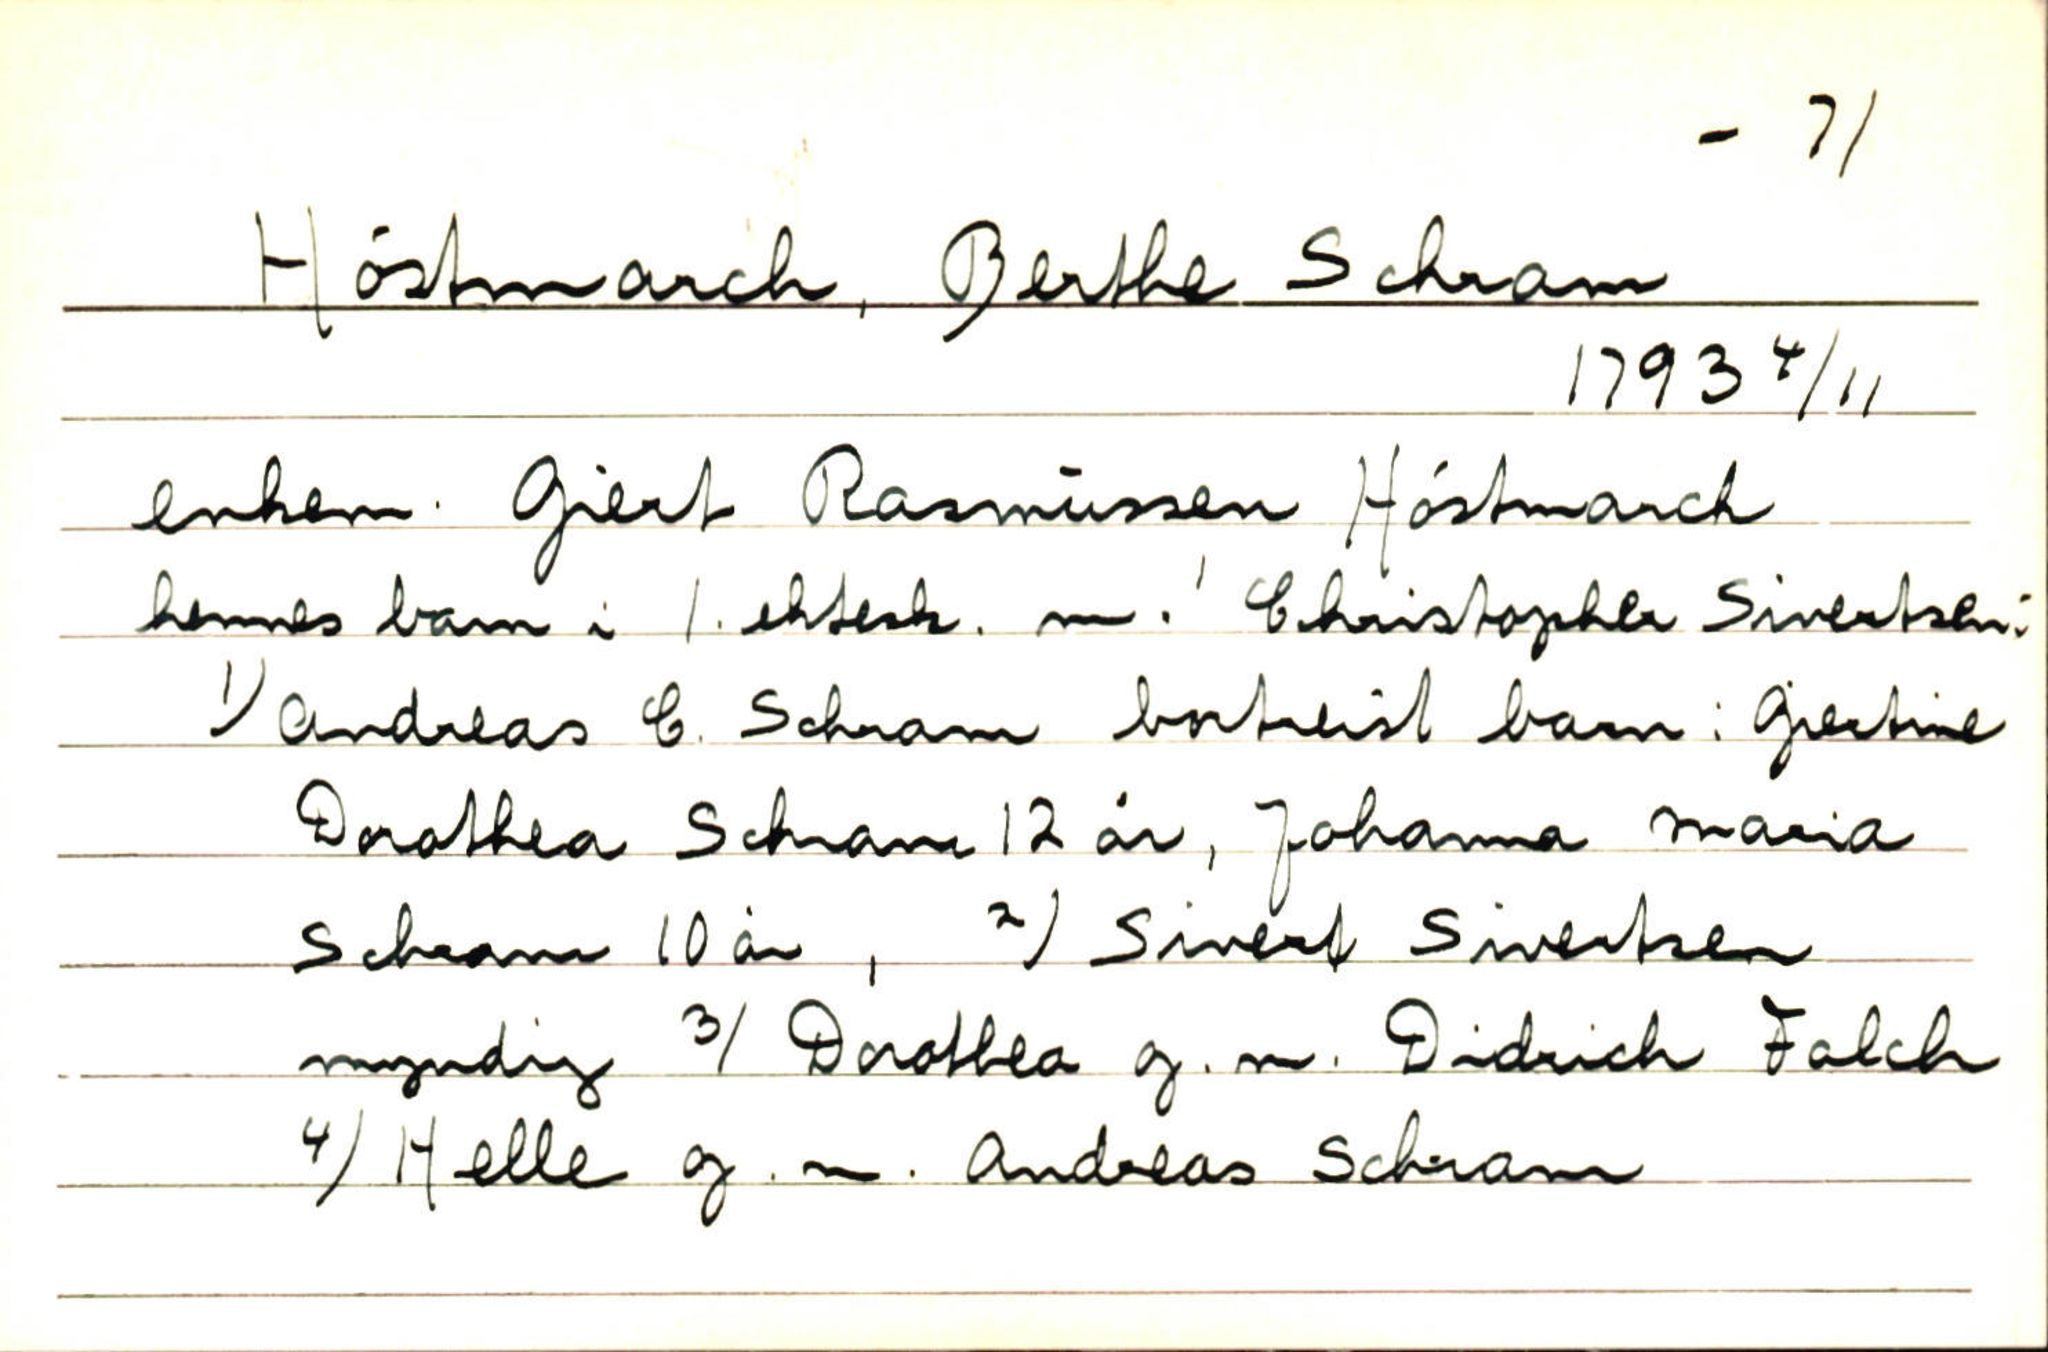 - 71
Hóstmarch, Berthe Schram
1793 4/11
enkem. Giert Rasmūssen Hóstmarch
hennes barn i 1. ektesk. m. Christopher Sivertsen:
1) Andreas C. Schram bortreist barn: Giertine
Dorothea Schram 12 år, Johanna Maria
Schram 10 år, 2) Sivert Sivertsen
myndig 3/ Dorothea g. m. Didrich Falch
4) Helle g. m. Andreas Schram